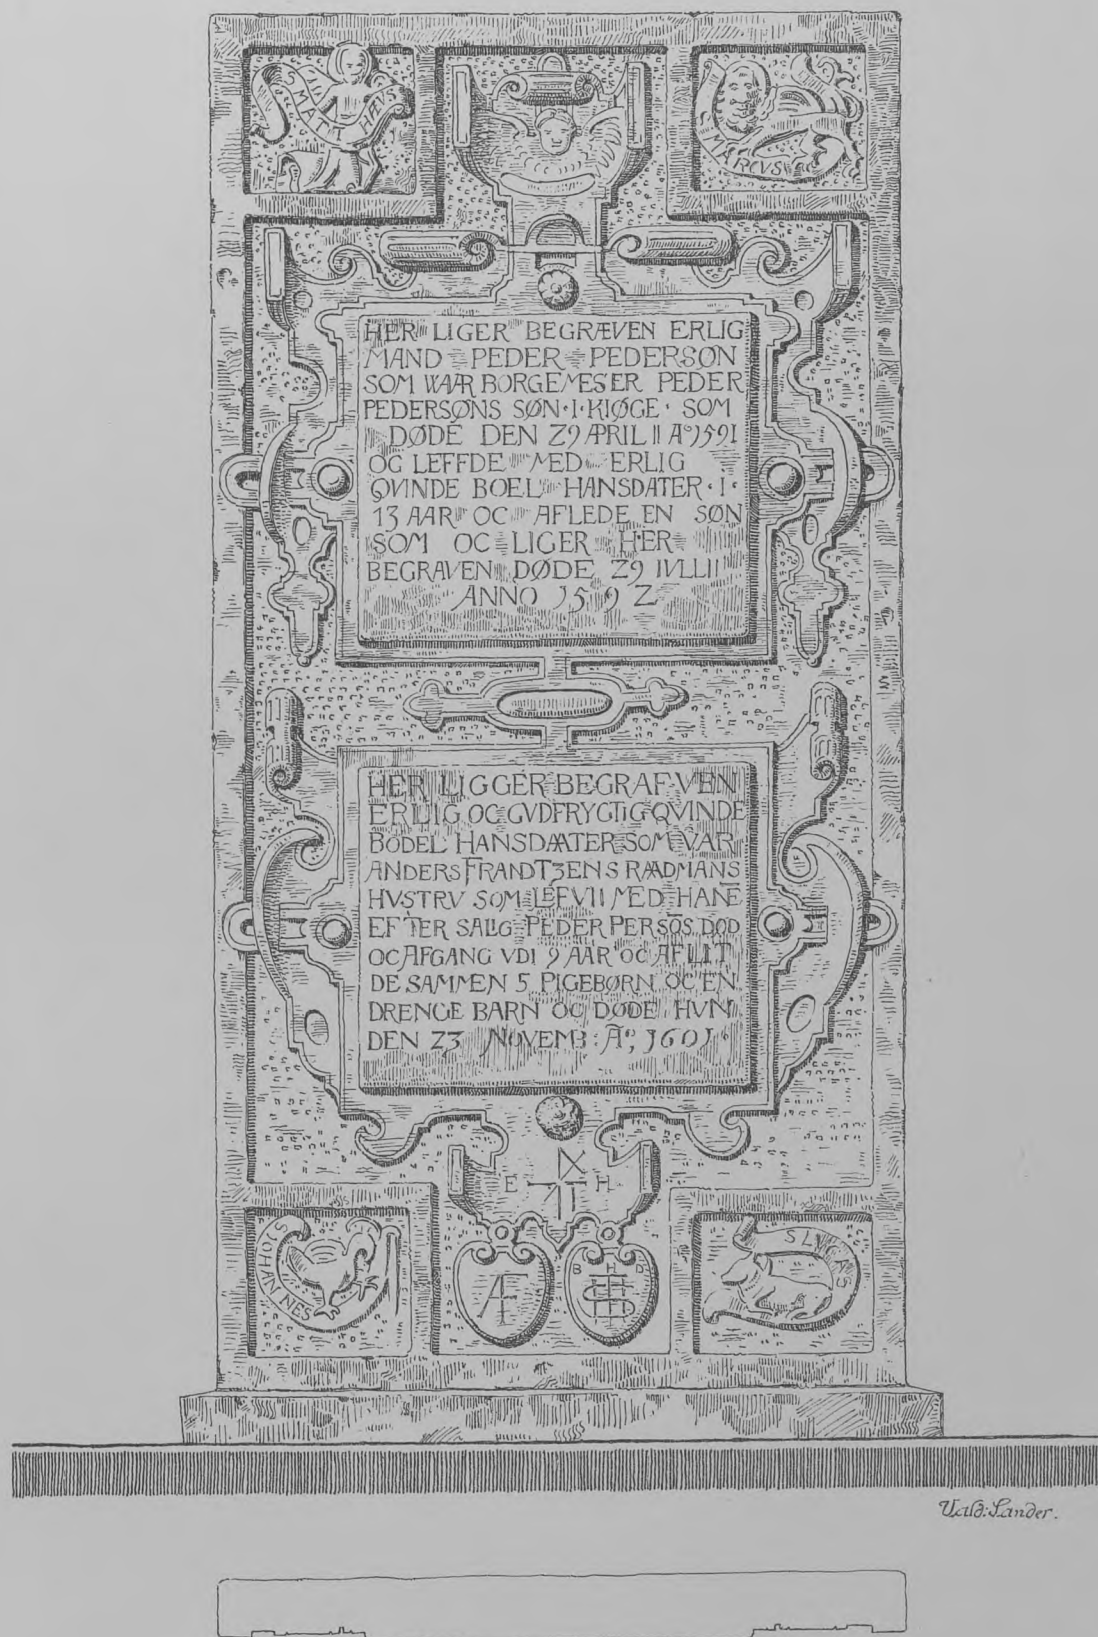 S MATTHÆVS
MARCVS
HER LIGER BEGRÆVEN ERLIG
MAND PEDER PEDERSØN
SOM WAAR BORGEMESER PEDER
PEDERSØNS SØN·I·KIØGE· SOM
DØDE DEN 29 APRILII A° 1591
OC LEFFDE MED ERLIG
QVINDE BOEL HANSDATER·I·
13 AAR OC AFLEDE EN SØN
SOM OC LIGER HER
BEGRAVEN DØDE 29 IVLLII
ANNO 1592
HER LIGGER BEGRAFVEN
ERLIG OC GVDFRYGTIG QVINDE
BODEL HANSDAATER SOM VAR
ANDERS FRANDTZENS RAADMANS
HVSTRV SOM LEFVII MED HANĒ
EFTER SALIG PEDER PERSØ̄S DØD
OC AFGANG VDI 9 AAR OC AFLIT
DE SAMMEN 5 PIGEBØRN OC EN
DRENGE BARN OC DØDE HVN
DEN 23 NOVEMB: A°, 1601
E H
S IOHANNES
AF
B H D
S LVCAS
Vald: Sander.